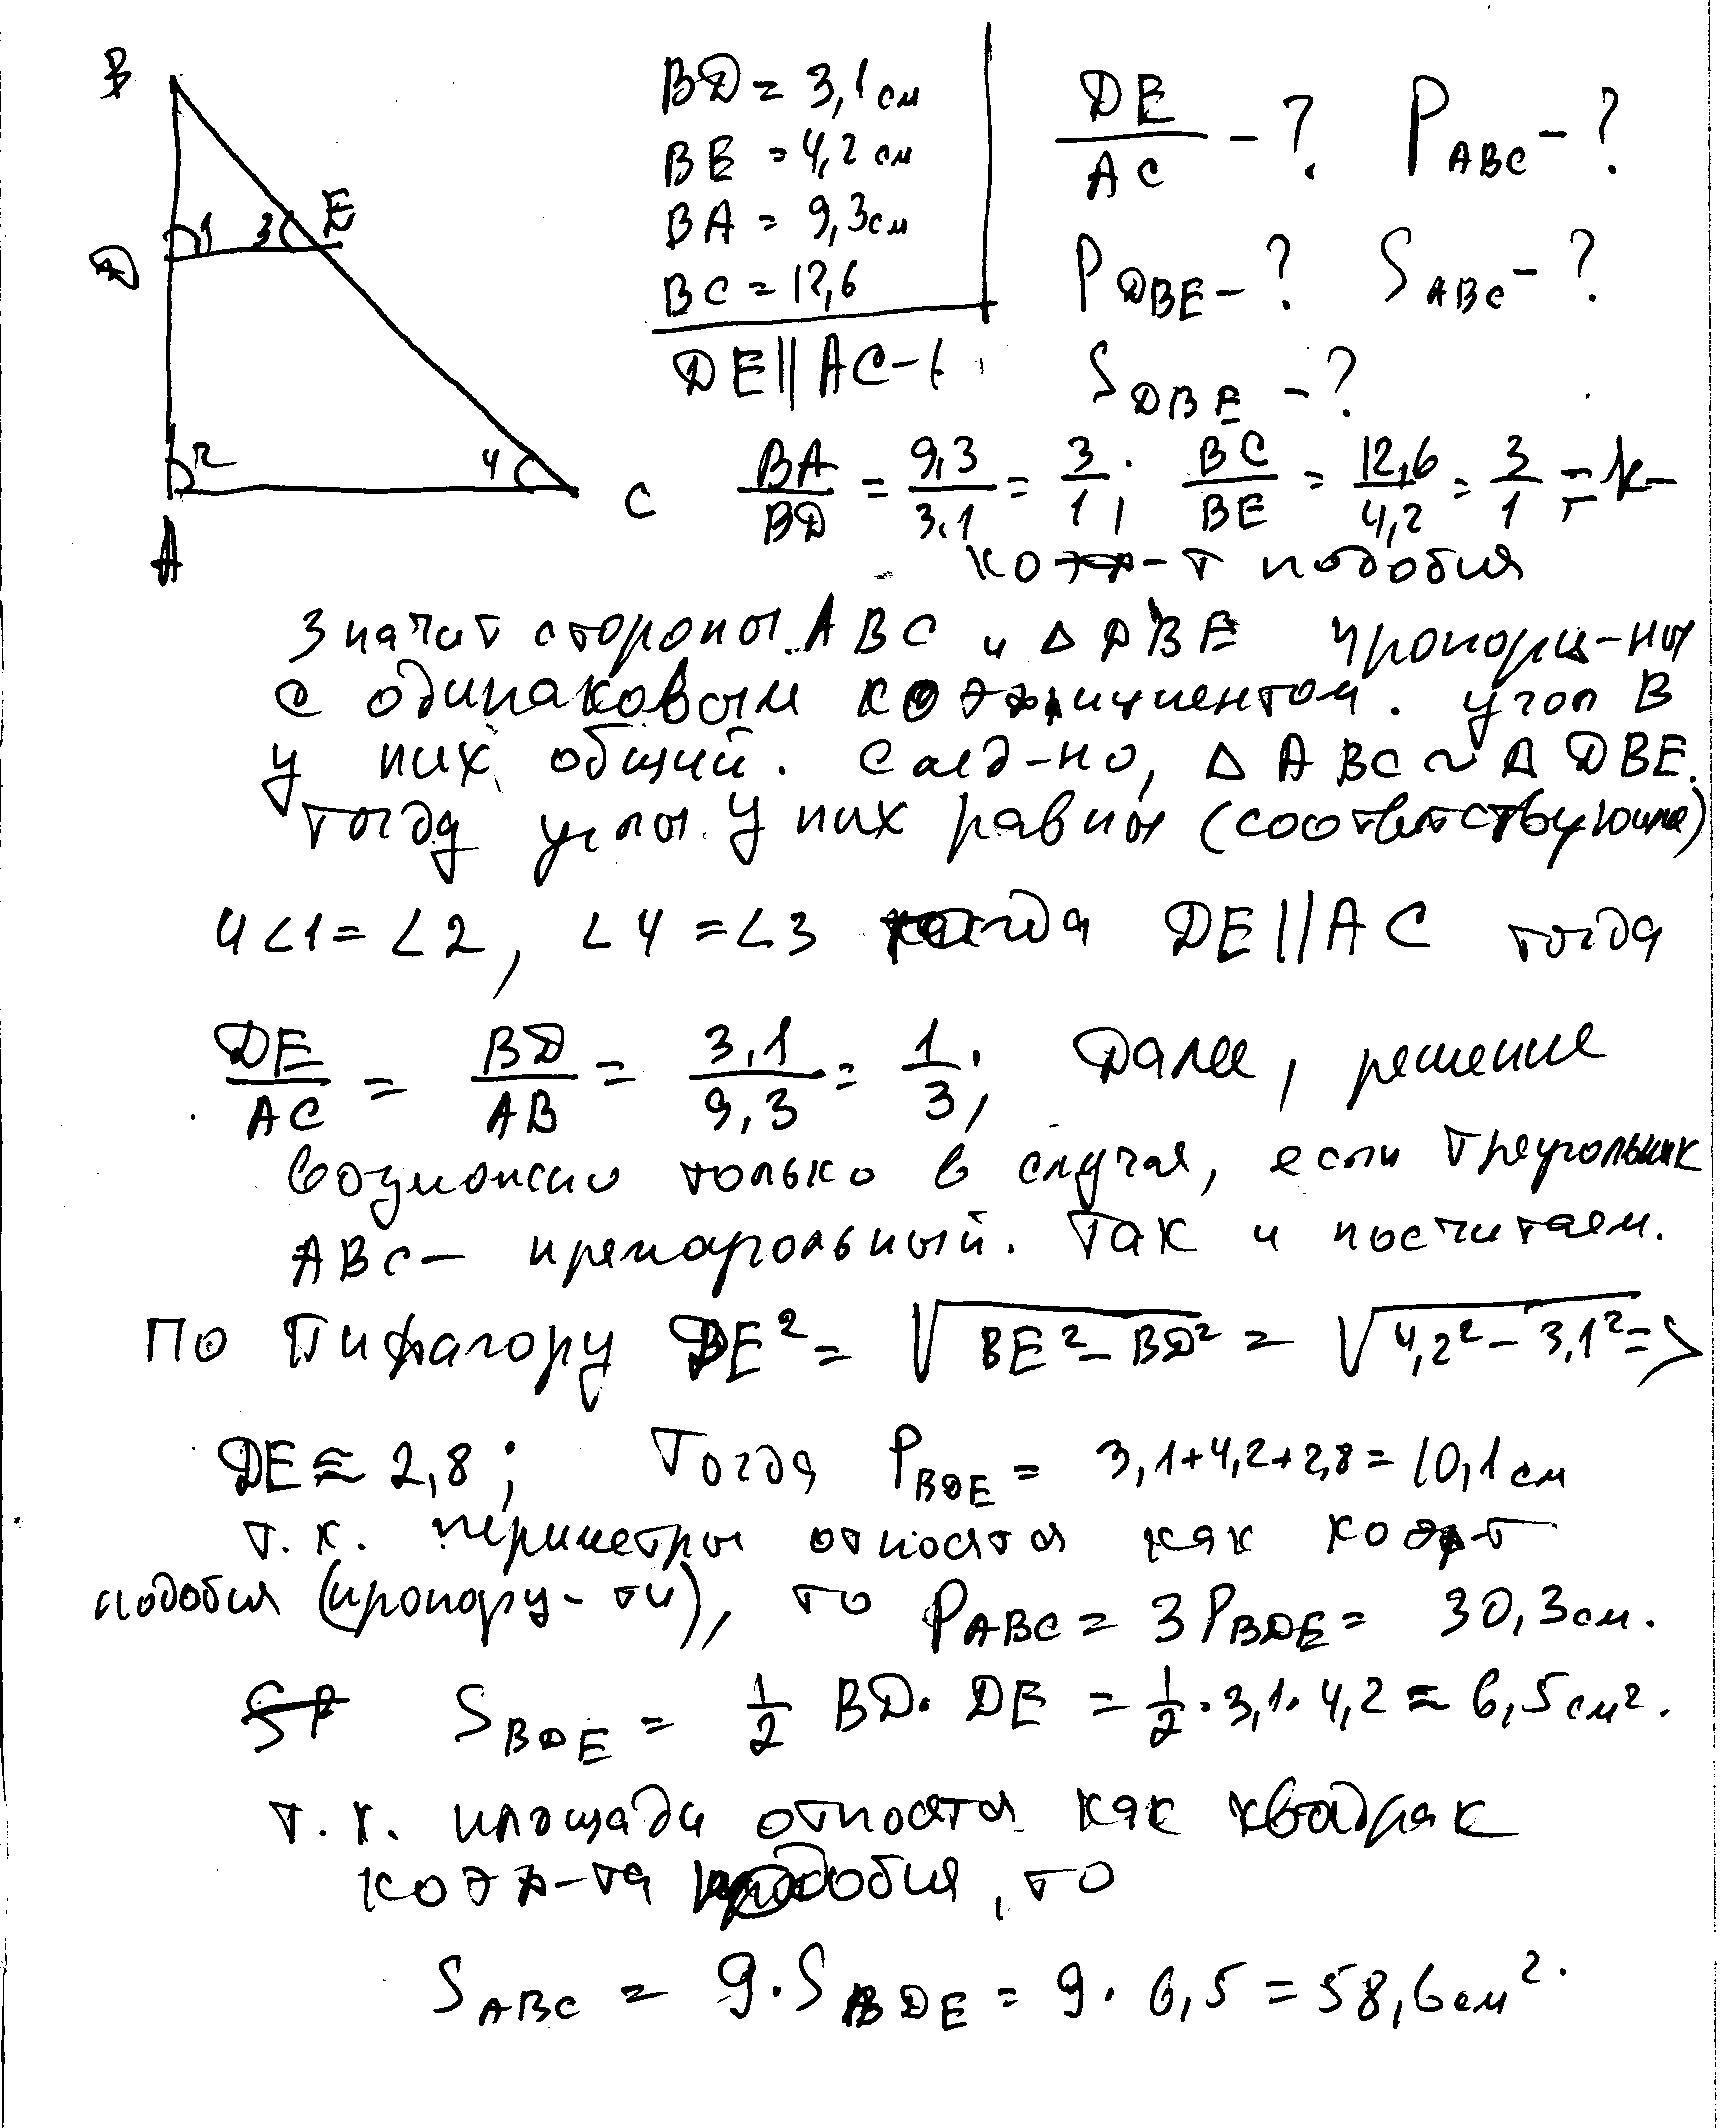 B
D
1
3
E
2
4
A
C
BD = 3,1 см
BE = 4,2 см
BA = 9,3 см
BC = 12,6
DE || AC -
DE/AC - ? P ABC - ?
P DBE - ? S ABC - ?
S DBE - ?
BA/BD = 9,3/3,1 = 3/1; BC/BE = 12,6/4,2 = 3/1 = k -
коэф-т подобия
Значит стороны ABC и △ DBE пропорц-ны
с одинаковым коэффициентом. угол B
у них общий. След-но, △ ABC ~ △ DBE.
тогда углы у них равны (соответствующие)
и ∠1 = ∠2, ∠4 = ∠3 тогда DE || AC тогда
DE/AC = BD/AB = 3,1/9,3 = 1/3; Далее, решение
возможно только в случая, если треугольник
ABC - прямоугольный. Так и посчитаем.
По Пифагору DE² = √(BE² - BD²) = √(4,2² - 3,1²) =>
DE ≈ 2,8; Тогда P BDE = 3,1+4,2+2,8 = 10,1 см
т.к. периметры относятся как коэф-т
подобия (пропорц-ти), то P ABC = 3 P BDE = 30,3 см.
S BDE = 1/2 BD · DE = 1/2 · 3,1 · 4,2 = 6,5 см².
т.к. площади относятся как квадрак
коэф-та подобия, то
S ABC = 9 · S BDE = 9 · 6,5 = 58,6 см².